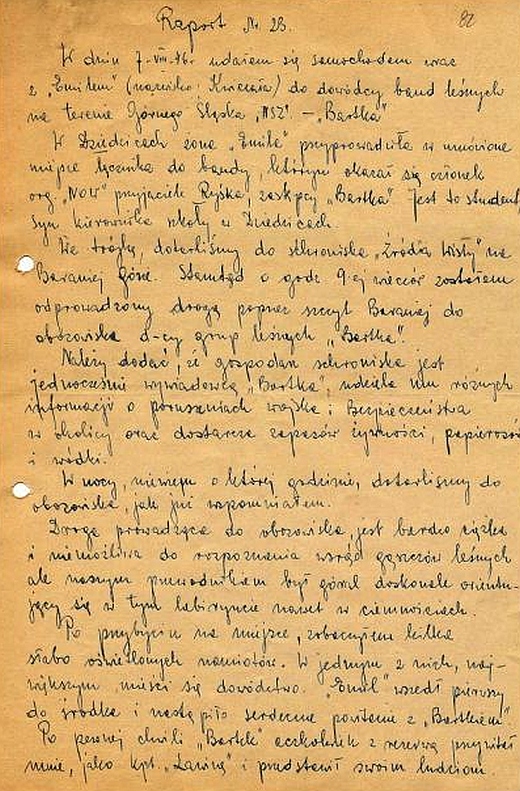 Raport Nr 28.
82
W dniu 7-VIII-46r. udałem się samochodem wraz
z „Emilem" (nazwisko: Kwiczała) do dowódcy band leśnych
na terenie Górnego Śląska „NSZ" – „Bartka"
W Dziedzicach żona „Emila" przyprowadziła w umówione
miejsce łącznika do bandy, którym okazał się członek
org. „NOW" przyjaciel Ryśka, zastępcy „Bartka". Jest to student
syn kierownika szkoły w Dziedzicach.
We trójkę, dotarliśmy do schroniska „Źródła Wisły" na
Baraniej górze. Stamtąd o godz. 9-ej wieczór zostałem
odprowadzony drogą poprzez szczyt Baraniej do
obozowiska d-cy grup leśnych „Bartka".
Należy dodać, że gospodarz schroniska jest
jednocześnie wywiadowcą „Bartka", udziela mu różnych
informacji o poruszeniach wojska i Bezpieczeństwa
w okolicy oraz dostarcza zapasów żywności, papierosów
i wódki.
W nocy, niewiem o której godzinie, dotarliśmy do
obozowiska, jak już wspomniałem.
Droga prowadząca do obozowiska, jest bardzo ciężka
i niemożliwa do rozpoznania wśród gąszczów leśnych
ale naszym przewodnikiem był góral doskonale orientu-
jący się w tym labiryncie nawet w ciemnościach.
Po przybyciu na miejsce, zobaczyłem kilka
słabo oświetlonych namiotów. W jednym z nich, naj-
większym, mieści się dowództwo. „Emil" wszedł pierwszy
do środka i nastąpiło serdeczne powitanie z „Bartkiem"
Po pewnej chwili „Bartek" aczkolwiek z rezerwą przywitał
mnie, jako kpt. „Lawinę" i przedstawił swoim ludziom.